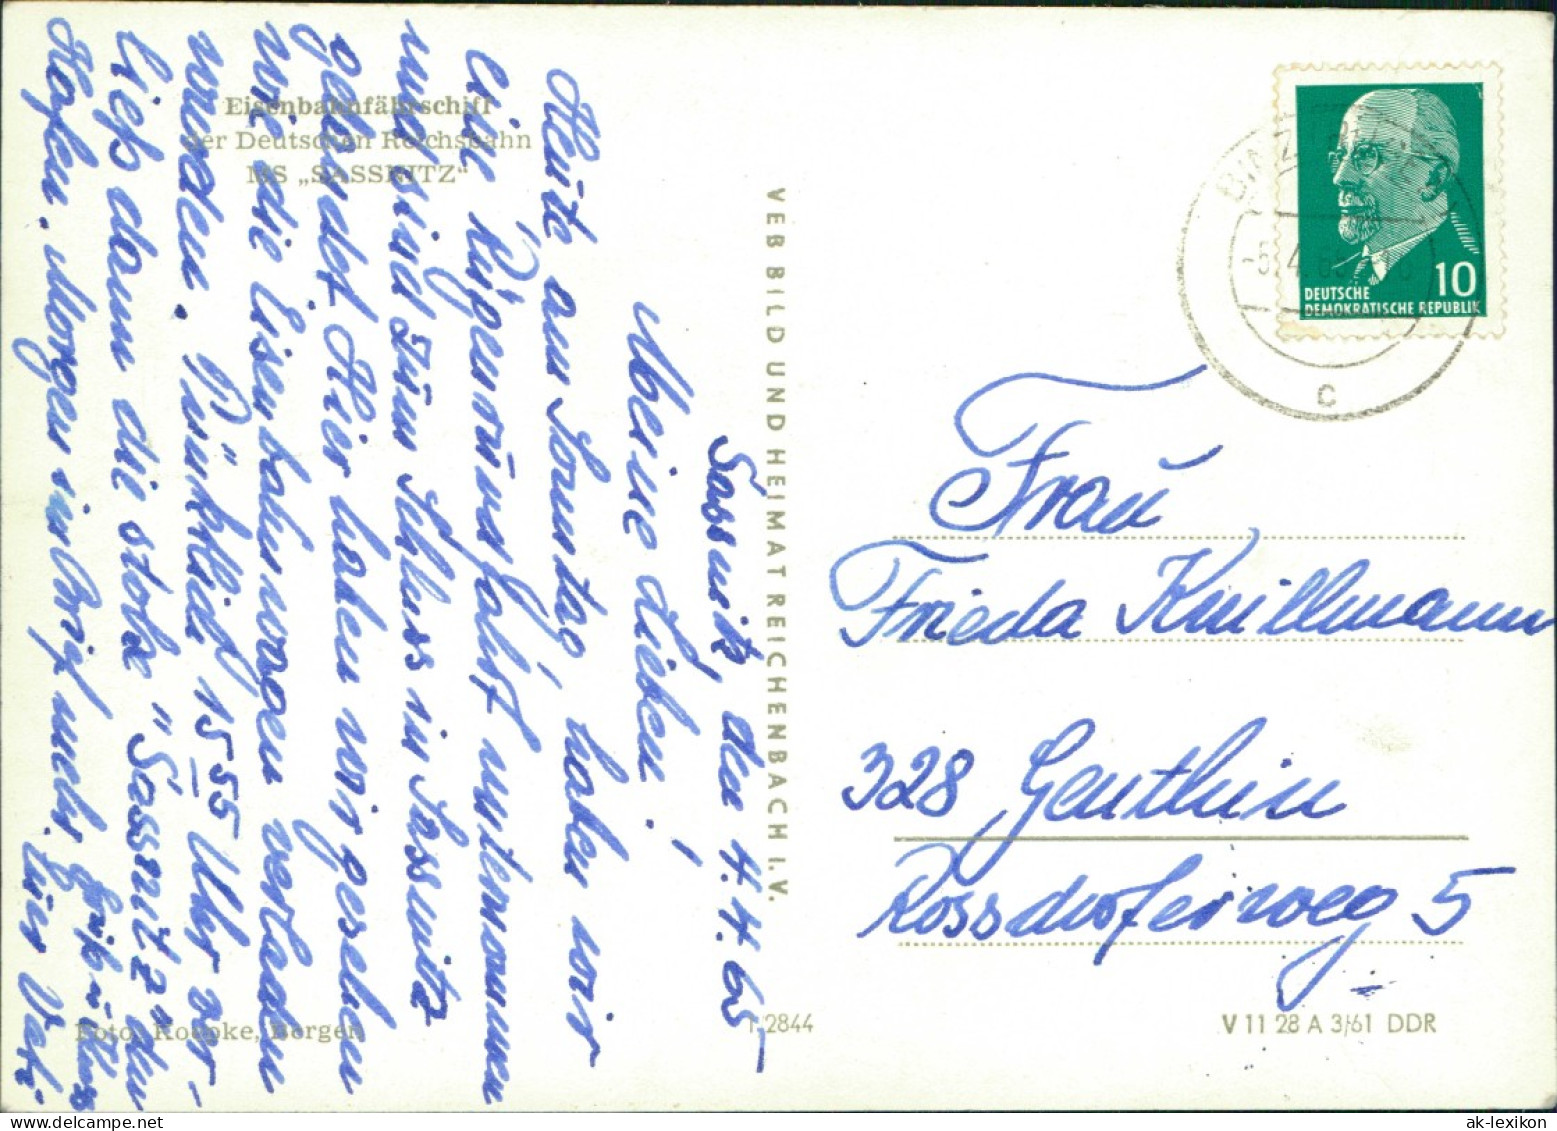 Eisenbahnfährschiff
der Deutschen Reichsbahn
MS „SASSNITZ"
Sassnitz, den 4.4.65
Meine Lieben!
Heute am Sonntag, haben wir
eine Rügenrundfahrt unternommen
und sind zum Schluss in Sassnitz
gelandet. Hier haben wir gesehen
wie die Eisenbahnwagen verladen
wurden. Pünktlich 15 55 Uhr ver-
ließ dann die stolze "Sassnitz" den
Hafen. Morgen im Brief mehr.
Euer
VEB BILD UND HEIMAT REICHENBACH I. V.
DEUTSCHE
DEMOKRATISCHE REPUBLIK
10
BINZ
4.65
c
Frau
Frieda Knillmann
328 Genthin
Rossdorferweg 5
Foto: Koeppke, Bergen
T 2844
V 11 28 A 3/61 DDR
ak-lexikon